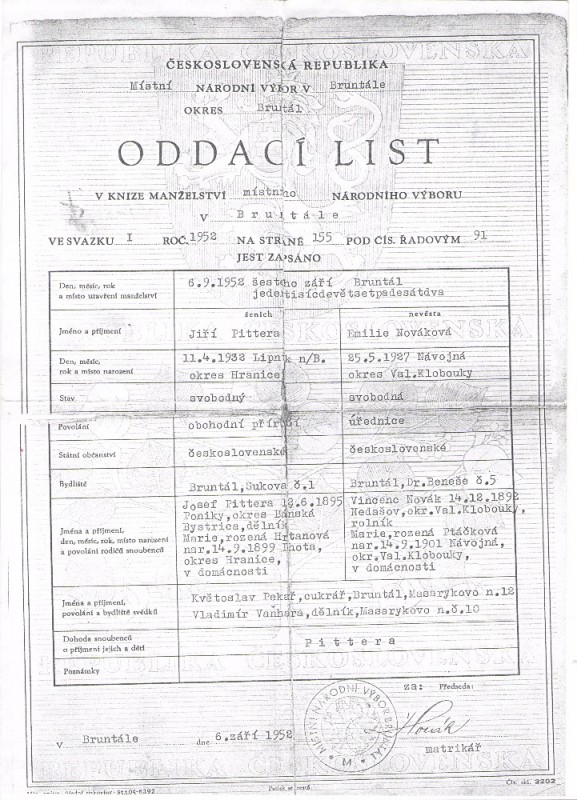 REPUBLIKA ČESKOSLOVENSKÁ
ČESKOSLOVENSKÁ REPUBLIKA
Místní NÁRODNÍ VÝBOR V Bruntále
OKRES Bruntál
ODDACÍ LIST
V KNIZE MANŽELSTVÍ místního NÁRODNÍHO VÝBORU
V Bruntále
VE SVAZKU I ROČ. 1952 NA STRANĚ 155 POD ČÍS. ŘADOVÝM 91
JEST ZAPSÁNO
Den, měsíc, rok
a místo uzavření manželství
6.9.1952 šestého září Bruntál
jedentisícdevětsetpadesátdva
ženich
nevěsta
Jméno a příjmení
Jiří Pittera
Emilie Nováková
Den, měsíc,
rok a místo narození
11.4.1932 Lipník n/B.
okres Hranice
25.5.1927 Návojná
okres Val.Klobouky
Stav
svobodný
svobodná
Povolání
obchodní
úřednice
Státní občanství
československé
československé
Bydliště
Bruntál,Sukova č.1
Bruntál,Dr.Beneše č.5
Jména a příjmení,
den, měsíc, rok, místo narození
a povolání rodičů snoubenců
Josef Pittera 18.6.1895
Poniky,okres Bánská
Bystrica,dělník
Marie,rozená
nar.14.9.1899 Lhota,
okres Hranice,
v domácnosti
Vincenc Novák 14.12.1892
Nedašov,okr.Val.Klobouky,
rolník
Marie,rozená Ptáčková
nar.14.9.1901 Návojná,
okr.Val.Klobouky,
v domácnosti
Jména a příjmení,
povolání a bydliště svědků
Květoslav Pekař,cukrář,Bruntál,Masarykovo n.12
Vladimír Vaňhara,dělník,Masarykovo n.č.10
Dohoda snoubenců
o příjmení jejich a dětí
Pittera
Poznámky
REPUBLIKA ČESKOSLOVENSKÁ
za: Předseda:
MÍSTNÍ NÁRODNÍ VÝBOR BRUNTÁL
M
V Bruntále dne 6.září 1952
matrikář